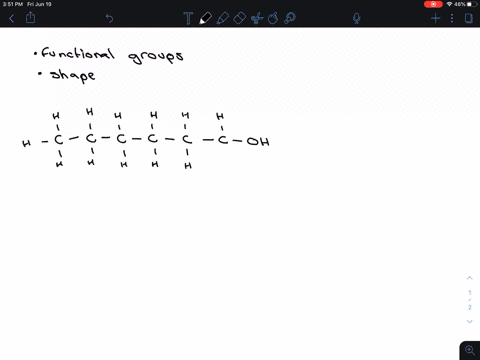 3:51 PM Fri Jun 19
46%
• functional groups
• shape
H H H H H H
H - C - C - C - C - C - C - OH
H H H H H
1
2